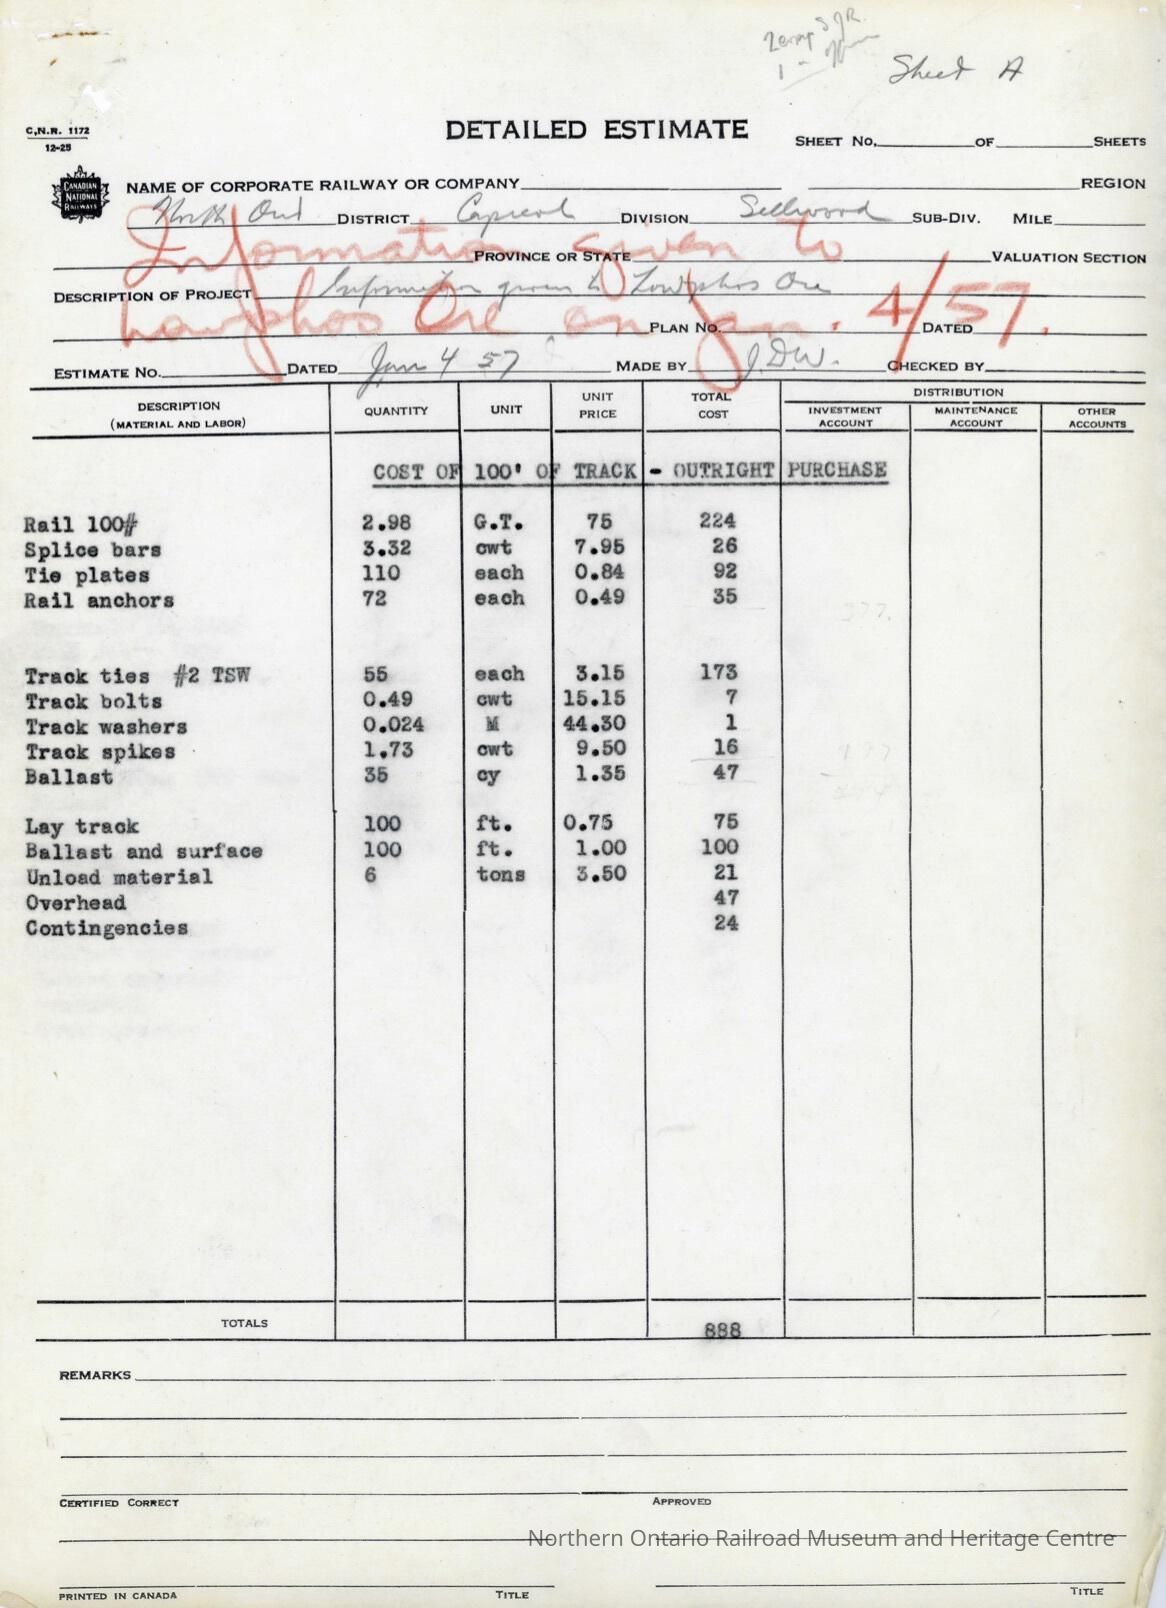 Sheet A
C.N.R. 1172
12-25
DETAILED ESTIMATE
SHEET No. OF SHEETS
CANADIAN NATIONAL RAILWAYS
NAME OF CORPORATE RAILWAY OR COMPANY REGION
North Ont DISTRICT Capreol DIVISION Sellwood SUB-DIV. MILE
Information given to
PROVINCE OR STATE VALUATION SECTION
DESCRIPTION OF PROJECT Information given to Lowphos Ore
Lowphos Ore on Jan. 4/57.
PLAN No. DATED
ESTIMATE No. DATED Jan 4 57 MADE BY J.D.W. CHECKED BY
DESCRIPTION (MATERIAL AND LABOR) QUANTITY UNIT UNIT PRICE TOTAL COST DISTRIBUTION
INVESTMENT ACCOUNT MAINTENANCE ACCOUNT OTHER ACCOUNTS
COST OF 100' OF TRACK - OUTRIGHT PURCHASE
Rail 100# 2.98 G.T. 75 224
Splice bars 3.32 cwt 7.95 26
Tie plates 110 each 0.84 92
Rail anchors 72 each 0.49 35
377.
Track ties #2 TSW 55 each 3.15 173
Track bolts 0.49 cwt 15.15 7
Track washers 0.024 M 44.30 1
Track spikes 1.73 cwt 9.50 16
Ballast 35 cy 1.35 47
Lay track 100 ft. 0.75 75
Ballast and surface 100 ft. 1.00 100
Unload material 6 tons 3.50 21
Overhead 47
Contingencies 24
TOTALS 888
REMARKS
CERTIFIED CORRECT APPROVED
Northern Ontario Railroad Museum and Heritage Centre
PRINTED IN CANADA TITLE TITLE